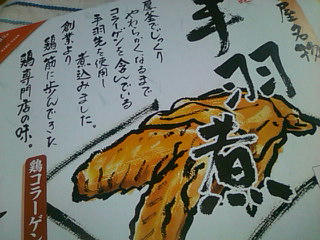 屋名物
手羽煮
屋釜でじっくり
やわらかくなるまで
コラーゲンを含んでいる
手羽先を使用し
煮込みました。
創業より
鶏一筋に歩んできた
鶏専門店の味。
鶏コラーゲン